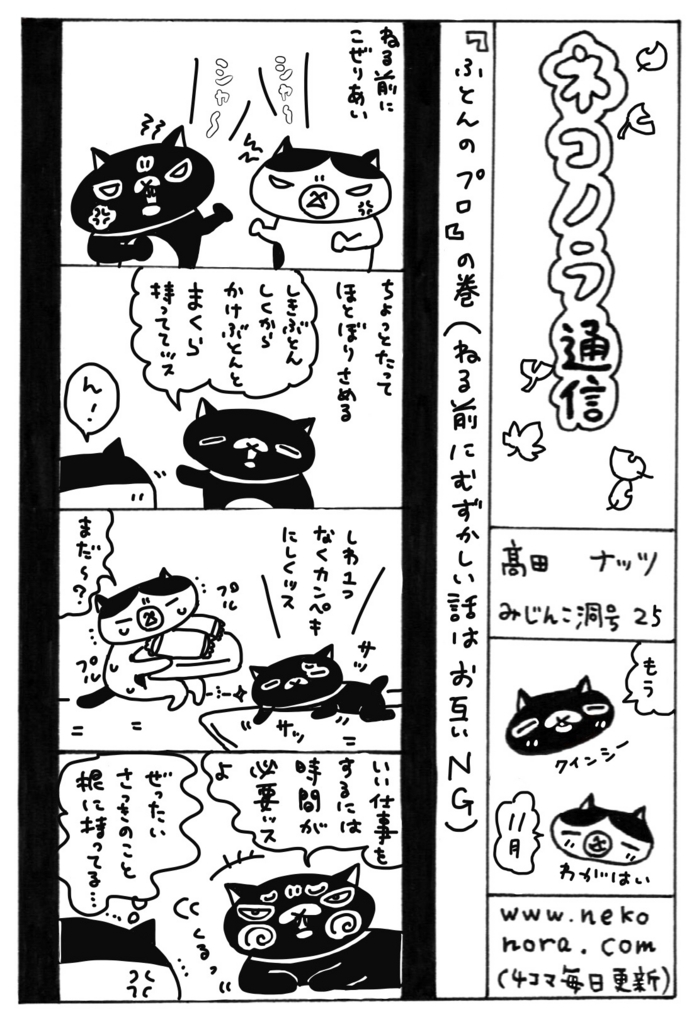 ネコノラ通信
高田 ナッツ
みじんこ洞号 25
もう
クインシー
11月
わがはい
www.neko
nora.com
(4コマ毎日更新)
『ふとんのプロ』の巻(ねる前にむずかしい話はお互いNG)
ねる前に
こぜりあい
シャー
シャ〜
ちょっとたって
ほとぼりさめる
しきぶとん
しくから
かけぶとんと
まくら
持っててッス
ん!
しわ1つ
なくカンペキ
にしくッス
サッ
サッ
プル
プル
まだ〜?
いい仕事を
するには
時間が
必要ッス
よ
くるっ
ぜったい
さっきのこと
根に持ってる…